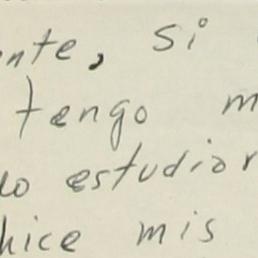 nte, si
tengo m
lo estudiar
hice mis